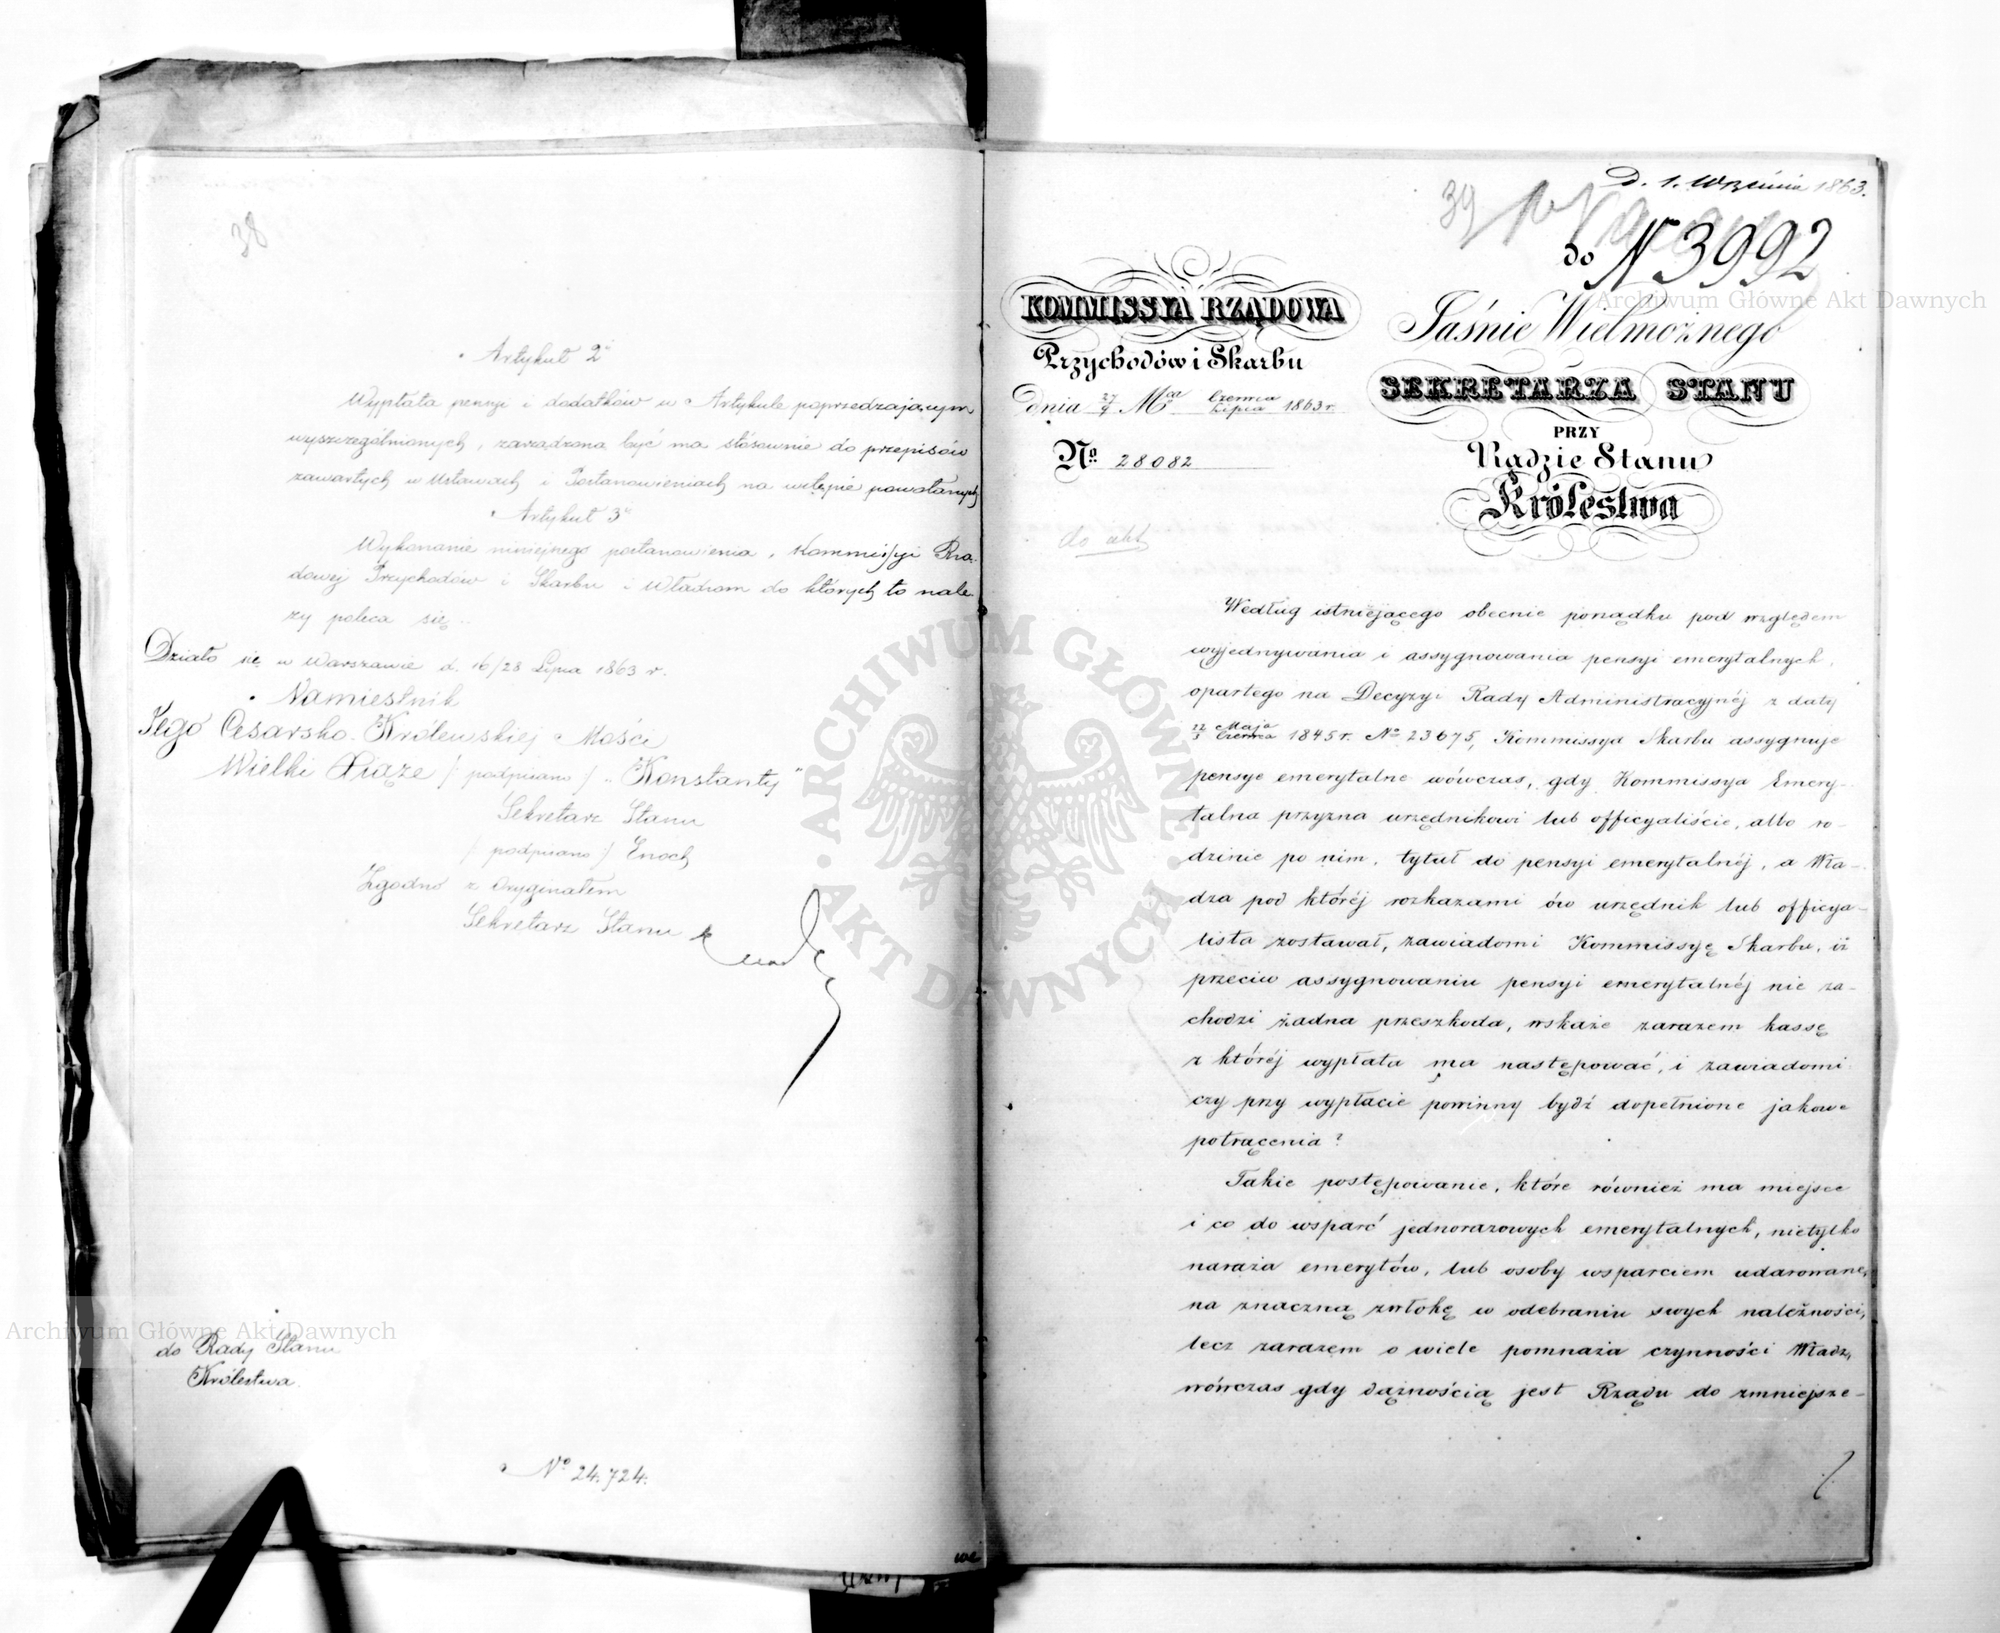 38
Artykuł 2i
Wypłata pensyi i dodatków w Artykule poprzedzającym
wyszczególnionych, zarządzona być ma stósownie do przepisów
zawartych w Ustawach i Postanowieniach na wstępie powołanych
Artykuł 3i
Wykonanie niniejszego postanowienia, Kommissyi Rzą-
dowej Przychodów i Skarbu i Władzom do których to nale
ży poleca się.
Działo się w Warszawie d. 16/28 Lipca 1863 r.
Namiestnik
Jego Cesarsko-Królewskiej Mości
Wielki Xiąże /podpisano/ „Konstanty”
Sekretarz Stanu
/podpisano/ Enoch
Zgodno z Oryginałem
Sekretarz Stanu Enoch
do Rady Stanu
Królestwa.
No 24,724.
D. 1. Września 1863.
39
do N 3992
KOMMISSYA RZĄDOWA
Przychodów i Skarbu
dnia 27/9 Mca Czerwca/Lipca 1863 r.
No 28082
Jaśnie Wielmożnego
SEKRETARZA STANU
PRZY
Radzie Stanu
Królestwa
do akt
Według istniejącego obecnie porządku pod względem
wyjednywania i assygnowania pensyi emerytalnych,
opartego na Decyzyi Rady Administracyjnéj z daty
22/3 Maja/Czerwca 1845 r. No 23675, Kommissya Skarbu assygnuje
pensye emerytalne wówczas, gdy Kommissya Emery-
talna przyzna urzędnikowi lub officyaliście, albo ro-
dzinie po nim, tytuł do pensyi emerytalnéj, a Wła-
dza pod któréj rozkazami ów urzędnik lub officya-
lista zostawał, zawiadomi Kommissyę Skarbu, iż
przeciw assygnowaniu pensyi emerytalnéj nie za-
chodzi żadna przeszkoda, wskaże zarazem kassę
z któréj wypłata ma następować, i zawiadomi
czy przy wypłacie powinny bydź dopełnione jakowe
potrącenia?
Takie postępowanie, które również ma miejsce
i co do wsparć jednorazowych emerytalnych, nietylko
naraża emerytów, lub osoby wsparciem udarowane,
na znaczną zwłokę w odebraniu swych należności,
lecz zarazem o wiele pomnaża czynności Władz,
wówczas gdy dążnością jest Rządu do zmniejsze-
Archiwum Główne Akt Dawnych
Archiwum Główne Akt Dawnych
ARCHIWUM GŁÓWNE · AKT DAWNYCH ·